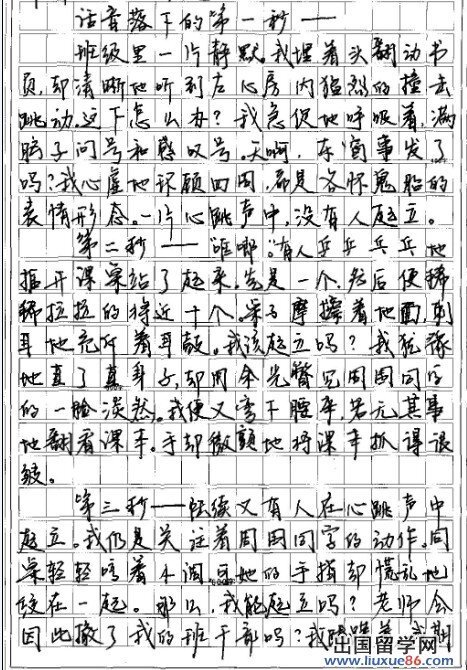 话音落下的第一秒——
班级里一片静默。我埋着头翻动书
页,却清晰地听到左心房内猛烈的撞击
跳动。这下怎么办?我急促地呼吸着,满
脑子问号和感叹号。天啊,东窗事发了
吗?我心虚地环顾四周,都是各怀鬼胎的
表情形态。一片心跳声中,没有人起立。
第二秒——"哐啷"。有人乒乒乓乓地
推开课桌站了起来。先是一个,然后便稀
稀拉拉的将近十个。桌子摩擦着地面,刺
耳地充斥着耳鼓。我该起立吗?我犹豫
地直了直身子,却用余光瞥见周围同学
的一脸淡然。我便又弯下腰来,若无其事
地翻看课本。手却微颤地将课本抓得很
皱。
第三秒——陆续又有人在心跳声中
起立。我仍是关注着周围同学的动作。同
桌轻轻哼着小调可她的手指却慌乱地
绞在一起。那么,我能起立吗?老师会
因此撤了我的班干部吗?我
出国留学网
www.liuxue86.com